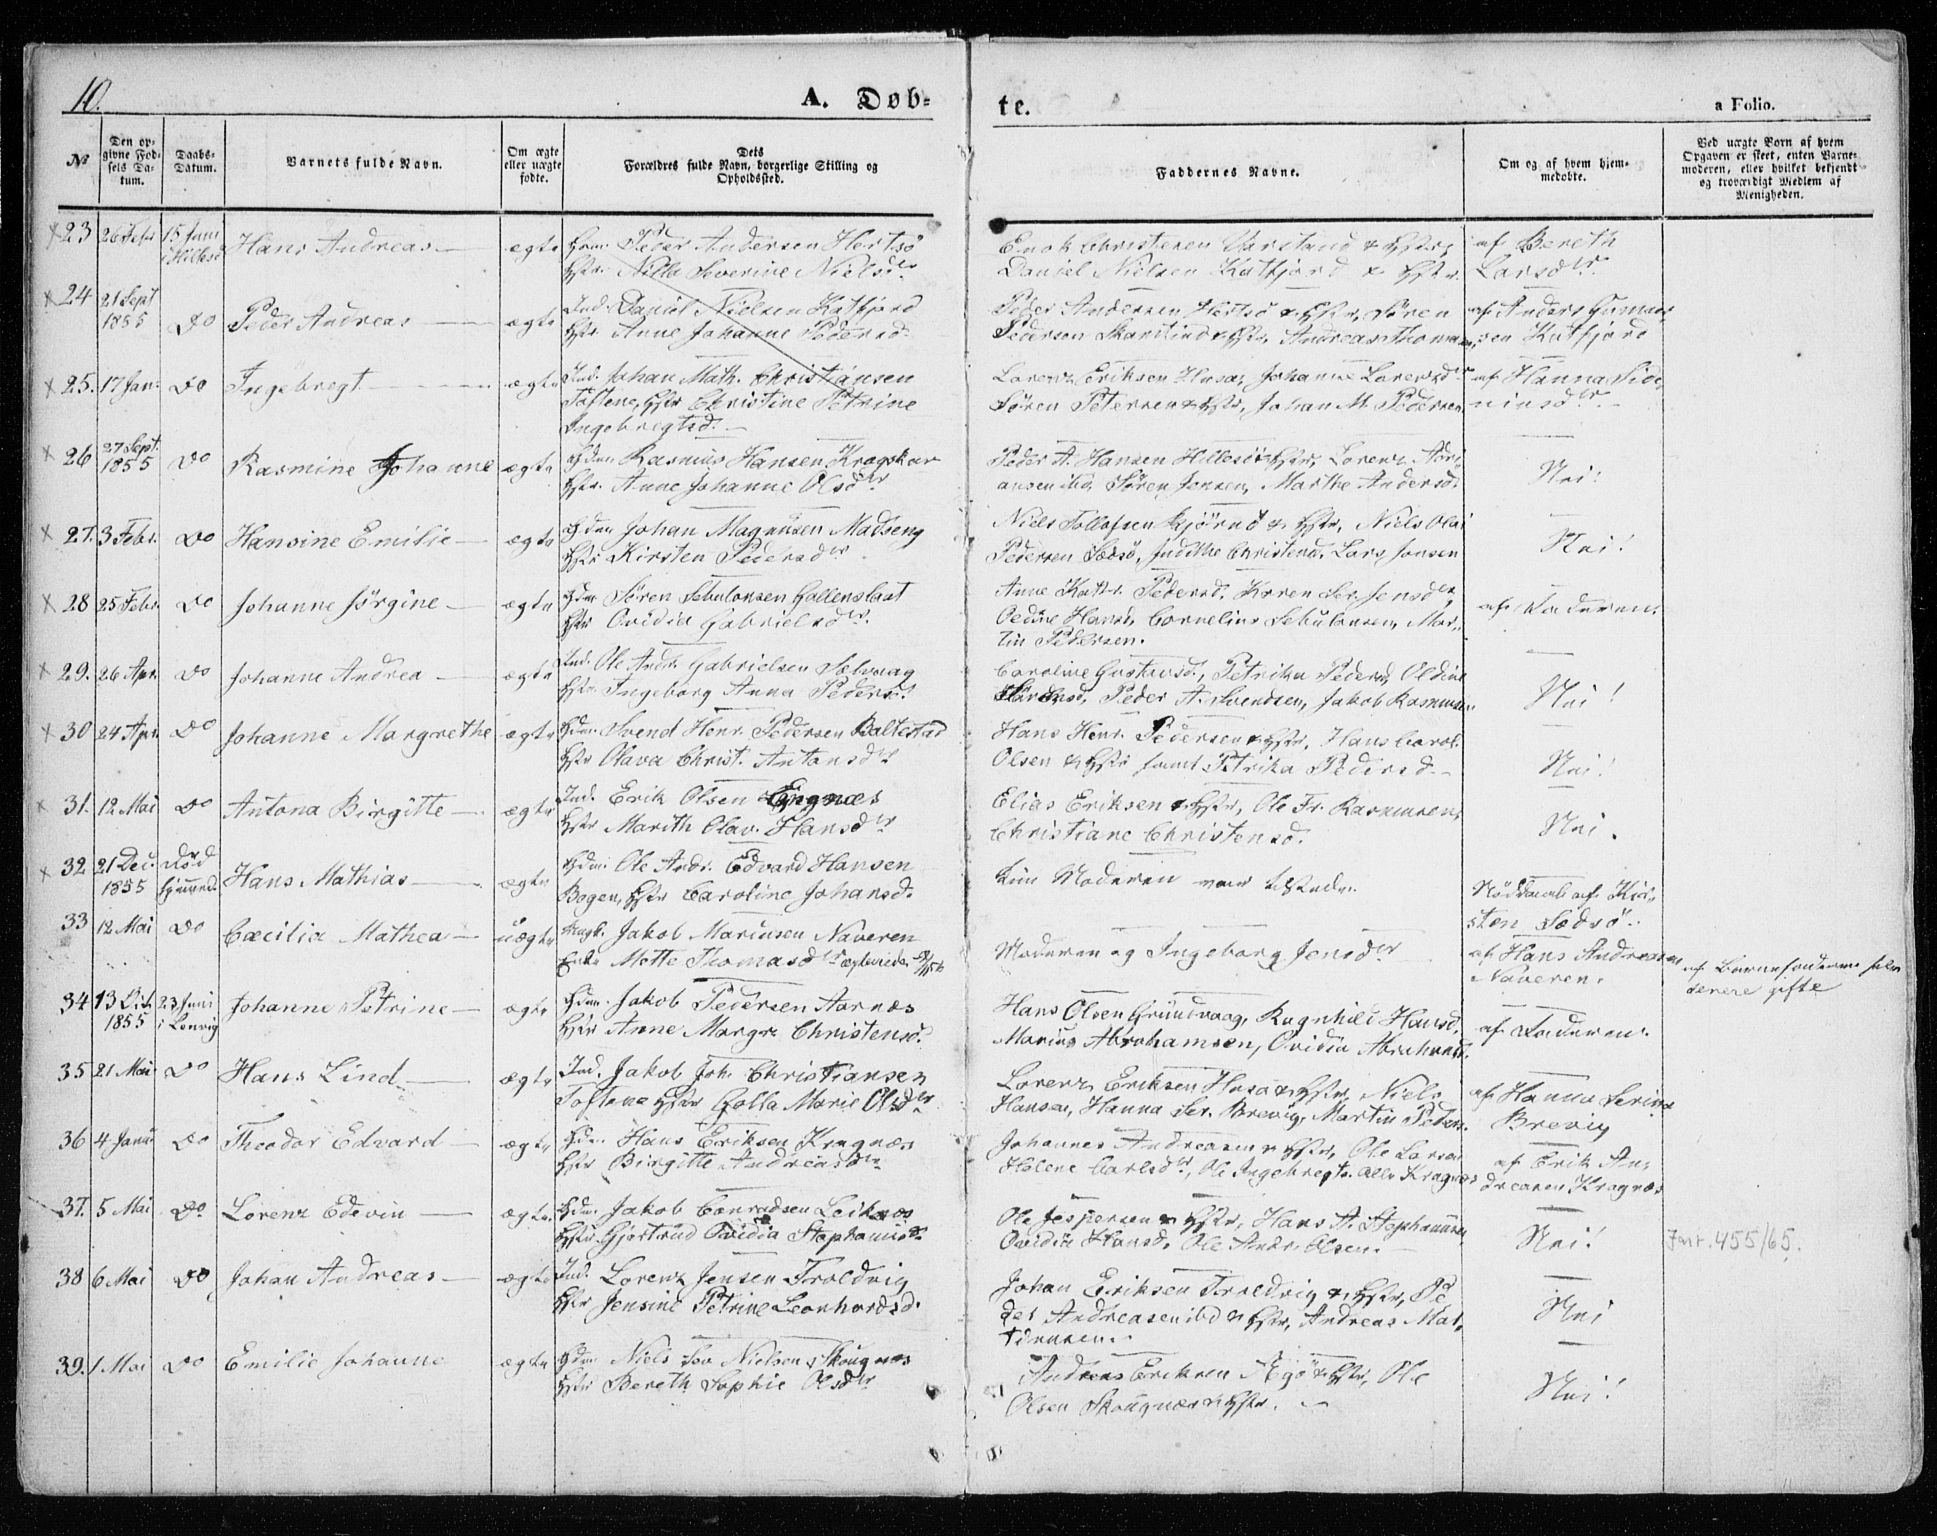 10.
A. Døb-
te.
a Folio.
№
Den op-
givne Fød-
sels Da-
tum.
Daabs-
Datum.
Barnets fulde Navn.
Om ægte
eller uægte
fødte.
Dets
Forældres fulde Navn, borgerlige Stilling og
Opholdssted.
Faddernes Navne.
Om og af hvem hjem-
medøbte.
Ved uægte Børn af hvem
Opgaven er skeet, enten Barne-
moderen, eller hvilket bekjendt
og troværdigt Medlem af
Menigheden.
23 26 Febr 15 Juni Hans Andreas ægte Peder Andersen Hertsø
Hstr. Nille Severine Nielsdr
Enok Christensen & Hstr,
Daniel Nielsen Katfjord & Hstr.
af Bereth
Larsdr.
24 21 Sept
1855 Do Peder Andreas ægte Ind. Daniel Nielsen Katfjord
Hstr. Anne Johanne Pedersd.
Peder Andersen Hertsø & Hstr, Sören
Pedersen & Hstr, Andreas Thomassen,
af Anders Gunnar
sen Katfjord
25. 17 Jan. Do Ingebregt ægte Ind. Johan Math. Christiansen
Toftene, Hstr Christine Petrine
Ingebregtsd.
Lorenz Eriksen Husa, Johanne Lorenzdr
Sören Petersen & Hstr, Johan M. Pedersen
af Hanna
26 27 Sept.
1855 Do Rasmine Johanne ægte Gdm. Rasmus Hansen Kragskar
Hstr. Anne Johanne Olsdr
Peder A. Hansen Hillesö & Hstr, Lorenz Adri-
ansen ibd, Sören Jensen, Marthe Andersd.
Nei!
27. 3 Febr. Do Hansine Emilie ægte Gdm. Johan Magnusen Madseng
Hstr Kirsten Pedersdr
Niels Tollefsen & Hstr, Niels Olai
Pedersen Sedsö, Judithe Christensd, Lars Jonsen
Nei!
28 25 Febr. Do Johanne Jörgine ægte Gdm. Sören Sebulonsen
Hstr Ovidia Gabrielsdr.
Anne Kathr. Pedersd, Karen Ser. Jensdr,
Oedine Hansd, Cornelius Sebulonsen, Mar-
tin Pedersen.
af Faderen.
29. 26 Apr. Do Johanne Andrea ægte Ind. Ole Andr. Gabrielsen Selvaag
Hstr Ingeborg Anna Pedersd.
Caroline Gustavsd., Petrika Pedersd, Oldine
Peder A. Svendsen, Jakob Rasmussen.
Nei!
30 24 Apr. Do Johanne Margrethe ægte Gdm. Svend Henr. Pedersen Baltestad
Hstr Olava Christ. Antonsdr
Hans Henr. Pedersen & Hstr, Hans Carol.
Olsen & Hstr samt Petrika Pedersd.
Nei!
31. 12 Mai Do Antona Birgitte ægte Ind. Erik Olsen Lyngnæs
Hstr Marith Olav. Hansdr
Elias Eriksen & Hstr, Ole Fr. Rasmussen,
Christiane Christensd.
Nei.
32. 21 Dec.
1855 Död
hjemmed. Hans Mathias ægte Gdm. Ole Andr. Edvard Hansen
Bogen, Hstr Caroline Johansd.
Kun Moderen var tilstede.
Nöddaab af Kir-
sten Sedsö.
33 12 Mai Do Cæcilia Mathea uægte Ungk. Jakob Mariusen Naveren
Enke Mette Thomasdr
Moderen og Ingeborg Jensdr
af Hans Andreasen
Naveren.
af Barnefaderen selv
senere gifte
34 13 Dec.
1855 23 Juni
i Lenvig Johanne Petrine ægte Gdm. Jakob Pedersen Aarnæs
Hstr Anne Margr. Christensd.
Hans Olsen Grundvaag, Ragnhild Hansd,
Marius Abrahamsen, Ovidia Abrahamsd.
af Faderen.
35 21 Mai Do Hans Lind ægte Ind. Jakob Joh. Christiansen
Toftene Hstr Golla Marie Olsdr
Lorenz Eriksen Husa & Hstr, Niels
Hansen, Hanna Ser. Brevig, Martin Peders.
af Hanna Serine
Brevig
36 4 Janu Do Theodor Edvard ægte Gdm. Hans Eriksen Kragnæs
Hstr Birgitte Andreasdr
Johannes Andreasen & Hstr, Ole Larsen
Helene Carlsdr, Ole Ingebregts. alle Kragnæs
af Erik An-
dreasen Kragnæs
37. 5 Mai Do Lorenz Edevin ægte. Gdm. Jakob Conradsen Leiknæs
Hstr Gjertrud Ovidia Stephanusd.
Ole Jespersen & Hstr, Hans A. Stephanusen,
Ovidia Hansd, Ole Andr. Olsen.
Nei!
Forr. 455/65.
38 6 Mai Do Johan Andreas ægte Ind. Lorenz Jensen Troldvig
Hstr Jensine Petrine Leonhardsd.
Johan Eriksen Troldvig & Hstr, Pe
der Andreasen ibd & Hstr, Andreas Mar-
Nei
39. 1 Mai Do Emilie Johanne ægte Gdm. Niels Sev Nielsen Skougnæs
Hstr Bereth Sophie Olsdr
Andreas Eriksen & Hstr, Ole
Olsen Skougnæs & Hstr.
Nei!